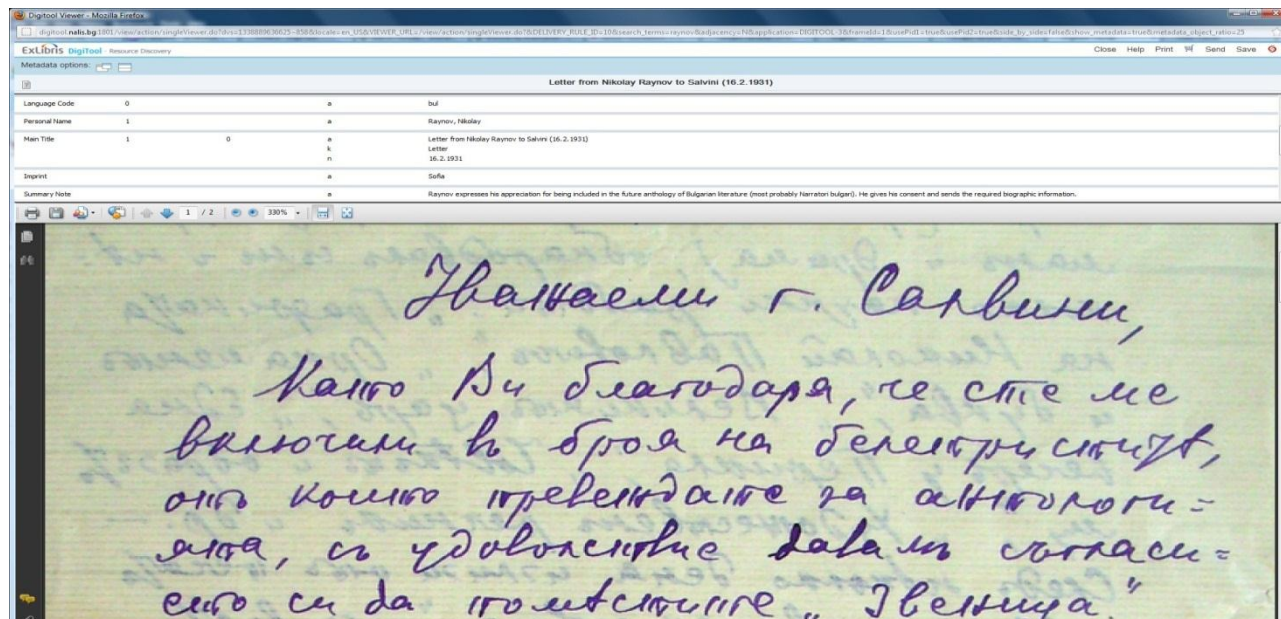 Digitool Viewer - Mozilla Firefox
digitool.nalis.bg:1801/view/action/singleViewer.do?dvs=1338889636625~858&locale=en_US&VIEWER_URL=/view/action/singleViewer.do?&DELIVERY_RULE_ID=10&search_terms=raynov&adjacency=N&application=DIGITOOL-3&frameId=1&usePid1=true&usePid2=true&side_by_side=false&show_metadata=true&metadata_object_ratio=25
ExLibris DigiTool - Resource Discovery Close Help Print Send Save
Metadata options:
Letter from Nikolay Raynov to Salvini (16.2.1931)
Language Code 0 a bul
Personal Name 1 a Raynov, Nikolay
Main Title 1 0 a Letter from Nikolay Raynov to Salvini (16.2.1931)
k Letter
n 16.2.1931
Imprint a Sofia
Summary Note a Raynov expresses his appreciation for being included in the future anthology of Bulgarian literature (most probably Narratori bulgari). He gives his consent and sends the required biographic information.
1 / 2 330%
Уважаеми г. Салвини,
Като Ви благодаря, че сте ме
включили въ броя на белетриститѣ,
отъ които превеждате за антологи=
ята, съ удоволствие давамъ съгласи=
ето си да помѣстите „Звеница“